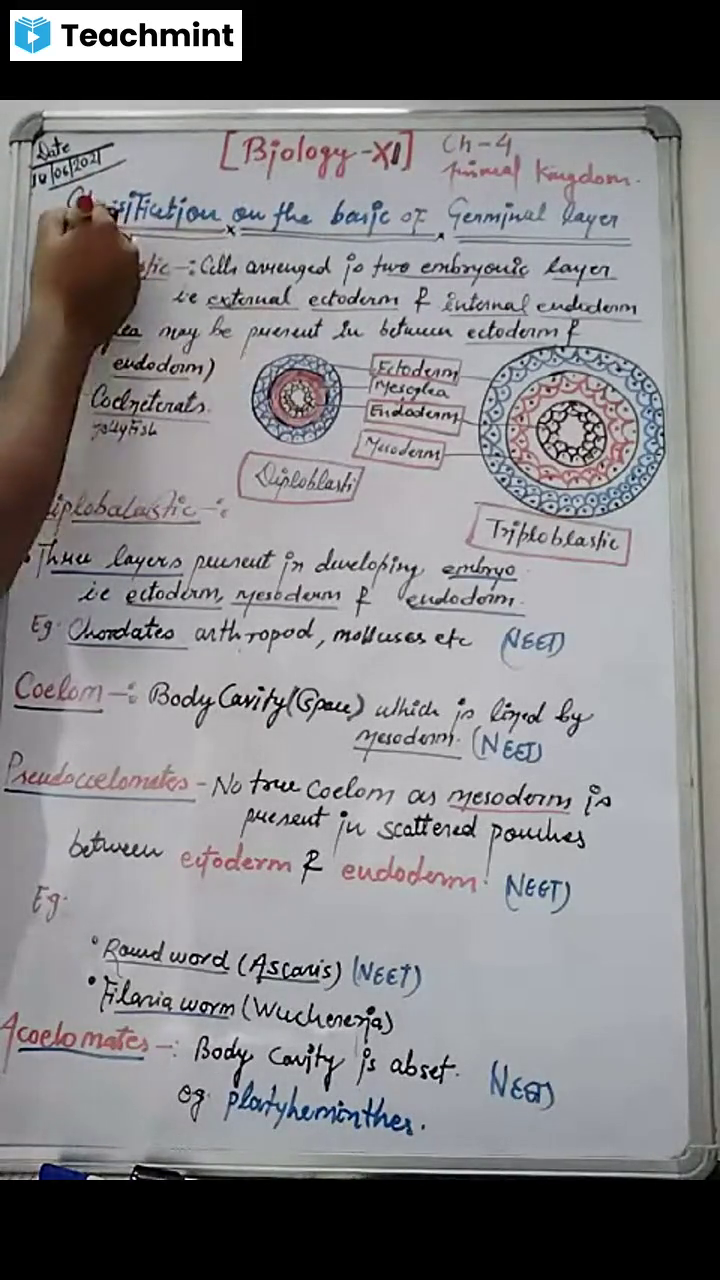 Teachmint
Date
10/06/2021
[Biology-XI]
Ch-4
Animal Kingdom.
on the basic of Germinal layer
Cells arrenged is two embryonic layer
ie external ectoderm & internal endoderm
may be present in between ectoderm &
endoderm)
Coelneterats.
JellyFish
Ectoderm
Mesoglea
Endoderm
Mesoderm
Diploblasti
Triploblastic
iplobalastic -:
Three layers present in developing embryo
ie ectoderm, mesoderm & endoderm.
Eg: Chordates arthropod, molluses etc (NEET)
Coelom -: Body Cavity (Space) which is lined by
mesoderm. (NEET)
Pseudocoelomates - No true Coelom as mesoderm is
present in scattered pouches
between ectoderm & endoderm. (NEET)
Eg.
• Round word (Ascaris) (NEET)
• Filaria worm (Wuchereria)
Acoelomates -: Body cavity is abset. (NEET)
eg. platyheminthes.